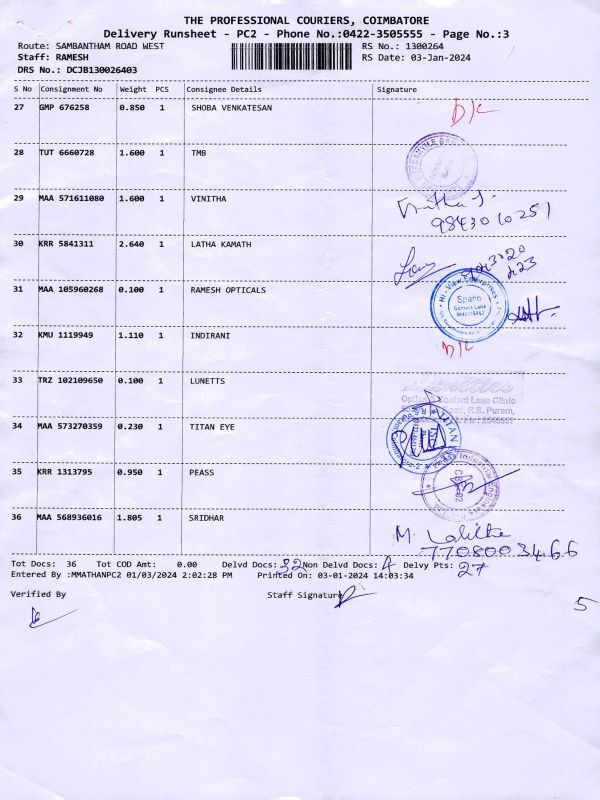 THE PROFESSIONAL COURIERS, COIMBATORE
Delivery Runsheet - PC2 - Phone No.:0422-3505555 - Page No.:3
Route: SAMBANTHAM ROAD WEST RS No.: 1300264
Staff: RAMESH RS Date: 03-Jan-2024
DRS No.: DCJB130026403
S No Consignment No Weight PCS Consignee Details Signature
27 GMP 676258 0.850 1 SHOBA VENKATESAN D/L
28 TUT 6660728 1.600 1 TMB
29 MAA 571611080 1.600 1 VINITHA
Vinitha J.
9843010251
30 KRR 5841311 2.640 1 LATHA KAMATH
31 MAA 105960268 0.100 1 RAMESH OPTICALS
Hi-View Enterprises
Spann
Contact Lens
32 KMU 1119949 1.110 1 INDIRANI D/L
33 TRZ 102109650 0.100 1 LUNETTS
Lunettes
Optics Contact Lens Clinic
Road, R.S. Puram,
34 MAA 573270359 0.230 1 TITAN EYE
TITAN
35 KRR 1313795 0.950 1 PEASS
36 MAA 568936016 1.805 1 SRIDHAR
M. Lalitha
7708003466
Tot Docs: 36 Tot COD Amt: 0.00 Delvd Docs: 32 Non Delvd Docs: 4 Delvy Pts: 27
Entered By :MMATHANPC2 01/03/2024 2:02:28 PM Printed On: 03-01-2024 14:03:34
Verified By Staff Signature
5